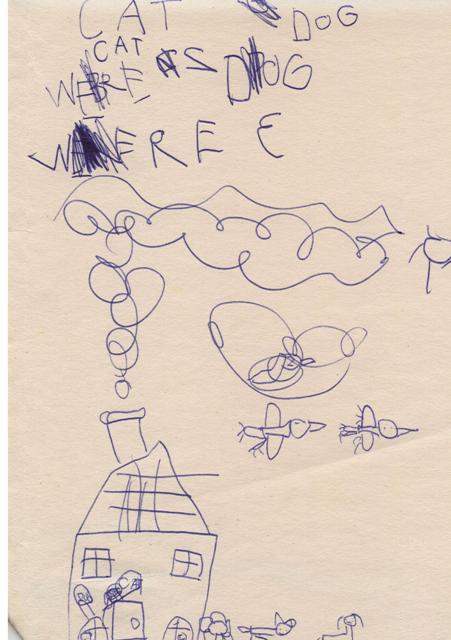 CAT DOG
CAT
WERE IS DOG
WERE E